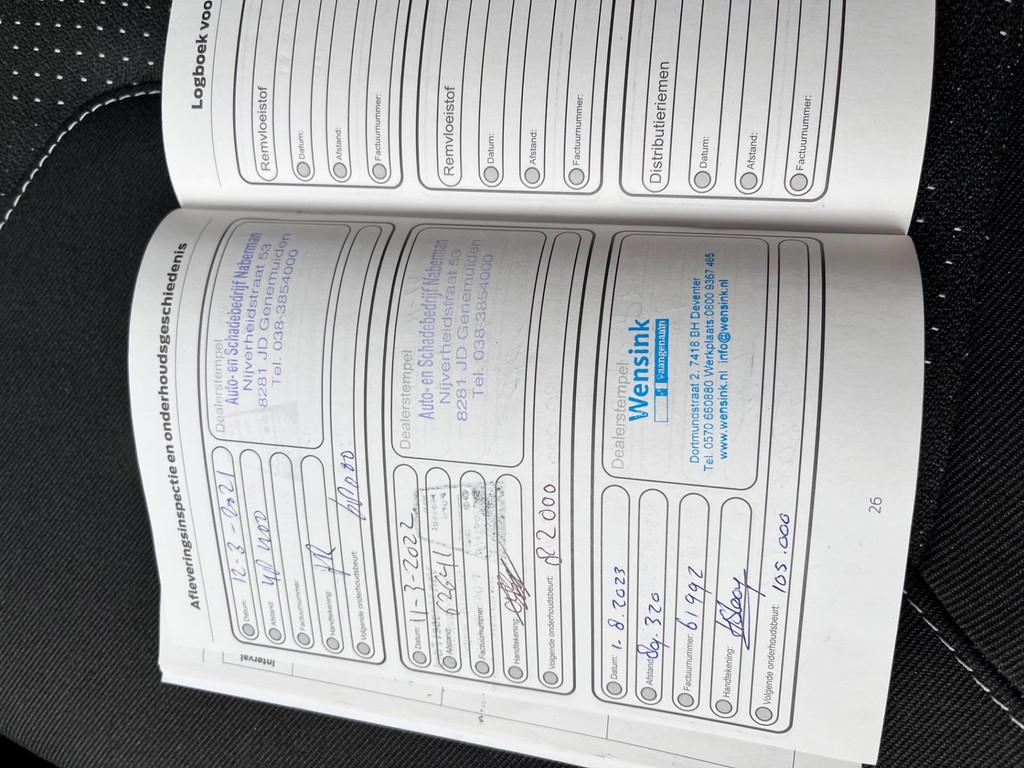 Afleveringsinspectie en onderhoudsgeschiedenis
Interval
Datum: 12-3-2021
Afstand:
Factuurnummer:
Handtekening:
Volgende onderhoudsbeurt:
Dealerstempel
Auto- en Schadebedrijf Naberman
Nijverheidstraat 53
8281 JD Genemuiden
Tel. 038-3854000
Datum: 1-3-2022
Afstand: 62541
Factuurnummer:
Handtekening:
Volgende onderhoudsbeurt: 82000
Dealerstempel
Auto- en Schadebedrijf Naberman
Nijverheidstraat 53
8281 JD Genemuiden
Tel. 038-3854000
Datum: 1.8.2023
Afstand: 89.320
Factuurnummer: 61992
Handtekening:
Volgende onderhoudsbeurt: 105.000
Dealerstempel
Wensink
vaangenaam
Dortmundstraat 2, 7418 BH Deventer
Tel. 0570 660880 Werkplaats:0800 9367 465
www.wensink.nl info@wensink.nl
26
Logboek voo
Remvloeistof
Datum:
Afstand:
Factuurnummer:
Remvloeistof
Datum:
Afstand:
Factuurnummer:
Distributieriemen
Datum:
Afstand:
Factuurnummer: